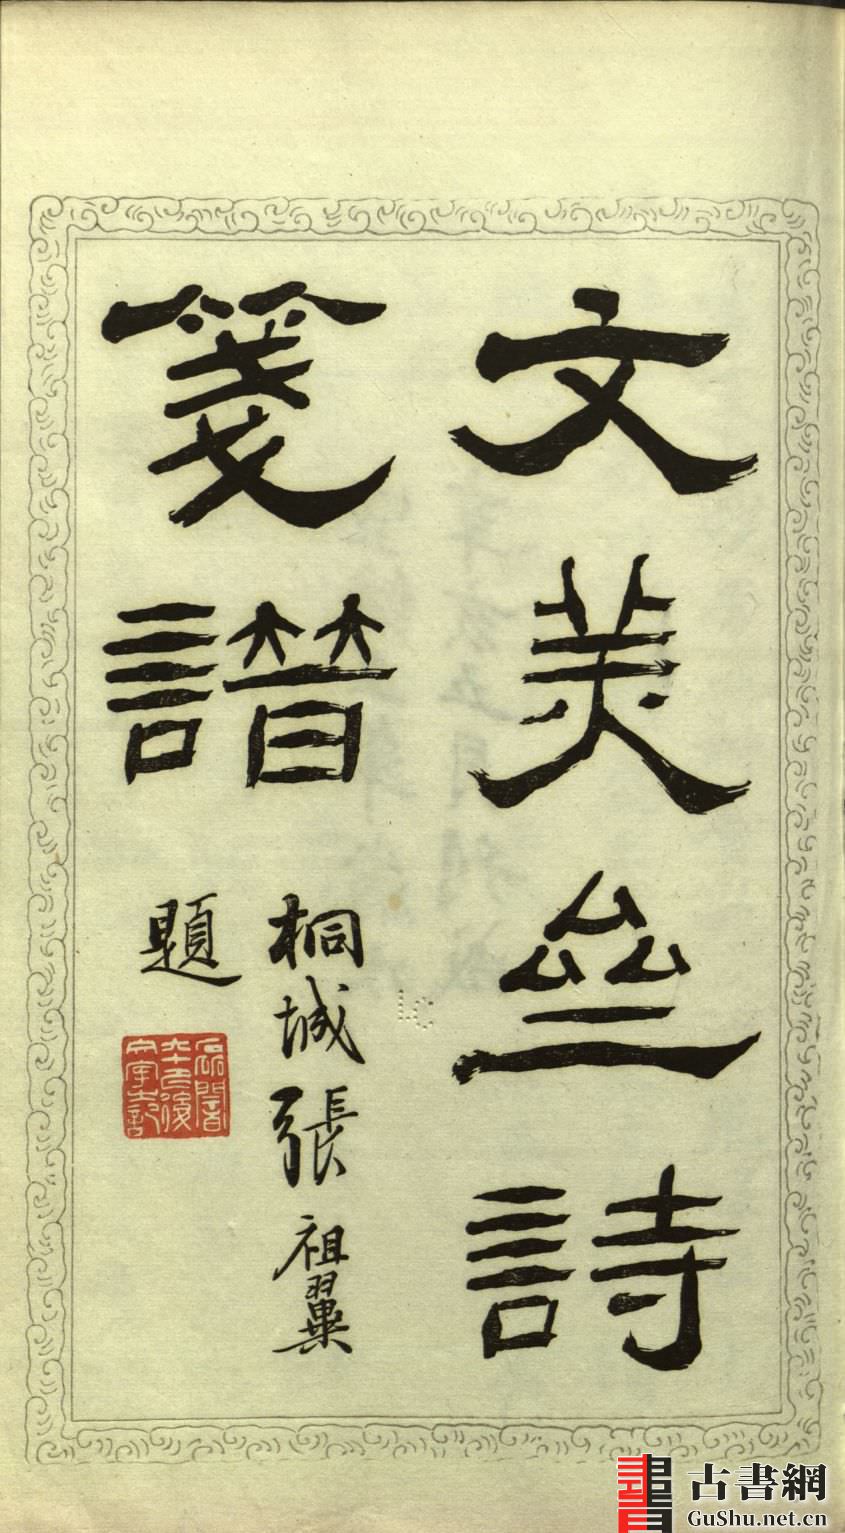 文美亝詩
箋譜
桐城張祖翼
題
古書網
GuShu.net.cn